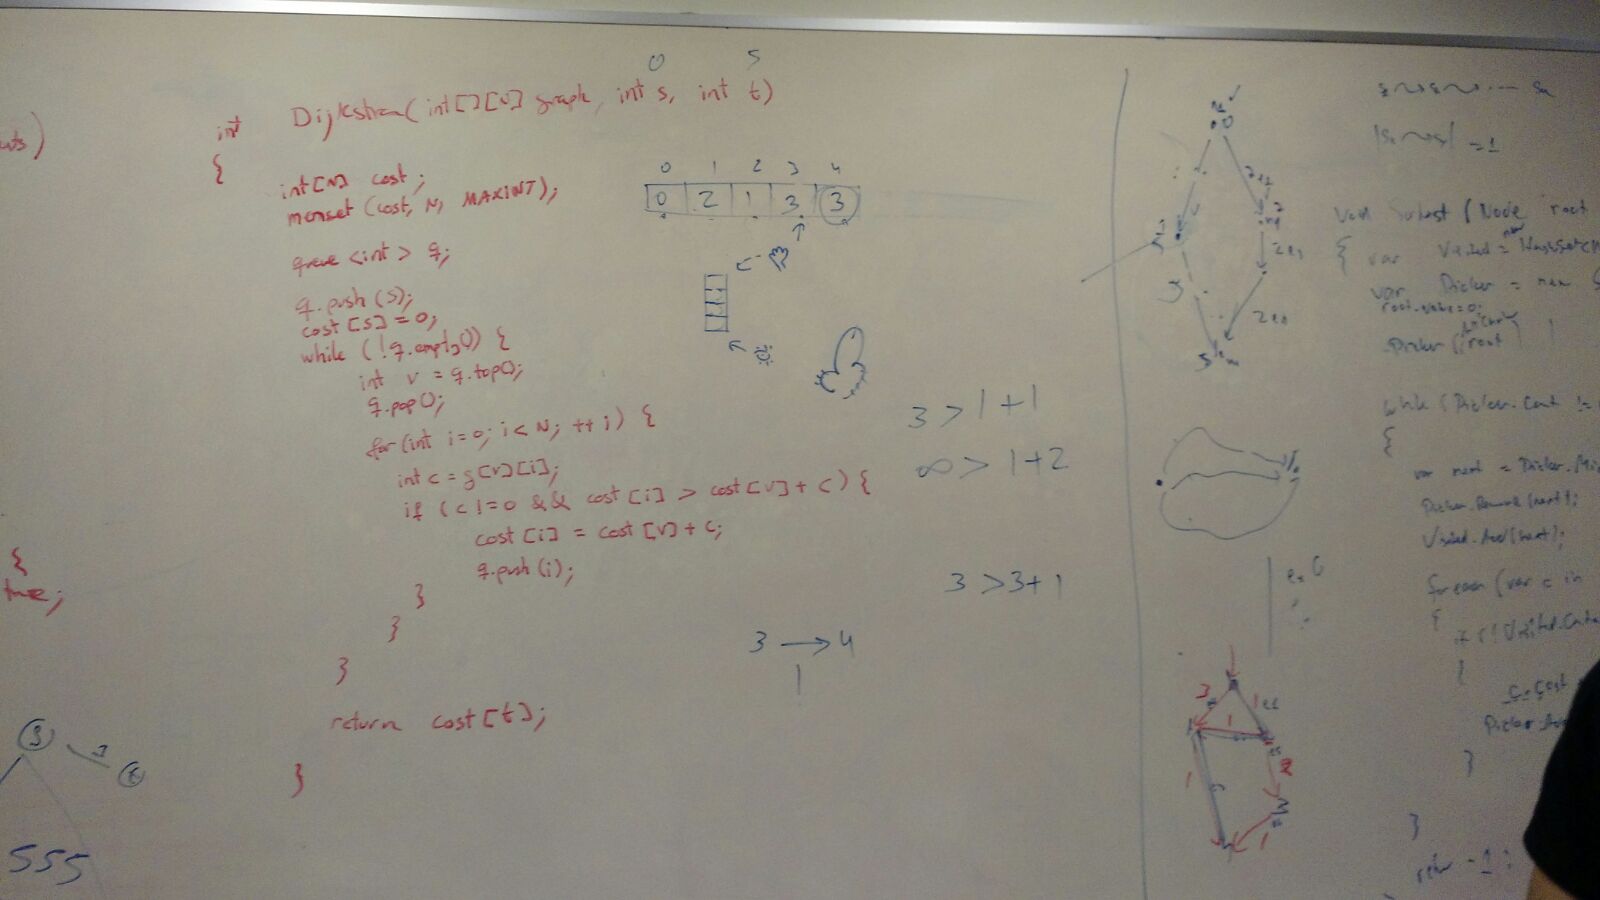 0 5
int Dijkstra(int[][N] graph, int s, int t)
{
int[N] cost;
memset (cost, N, MAXINT);
queue <int> q;
q.push(s);
cost[s]=0;
while (!q.empty()) {
int v = q.top();
q.pop();
for(int i=0; i<N; ++i) {
int c = g[v][i];
if (c!=0 && cost[i] > cost[v]+c) {
cost[i] = cost[v]+c;
q.push(i);
}
}
}
return cost[t];
}
0 1 2 3 4
0 2 1 3 3
3 > 1+1
∞ > 1+2
3 > 3+1
3 → 4
1
{
true;
3
555
=1
void (Node root
{ var Visited = new HashSet
var Picker = new
root.value=0;
Picker (root)
while (Picker.Count !=
{
var next = Picker.Mi
Picker.Remove(next);
Visited.Add(next);
foreach (var c in
{
if (!Visited.Conta
{
c.Cost
Picker.Add
}
}
return -1;
3 1
1
1 2
1